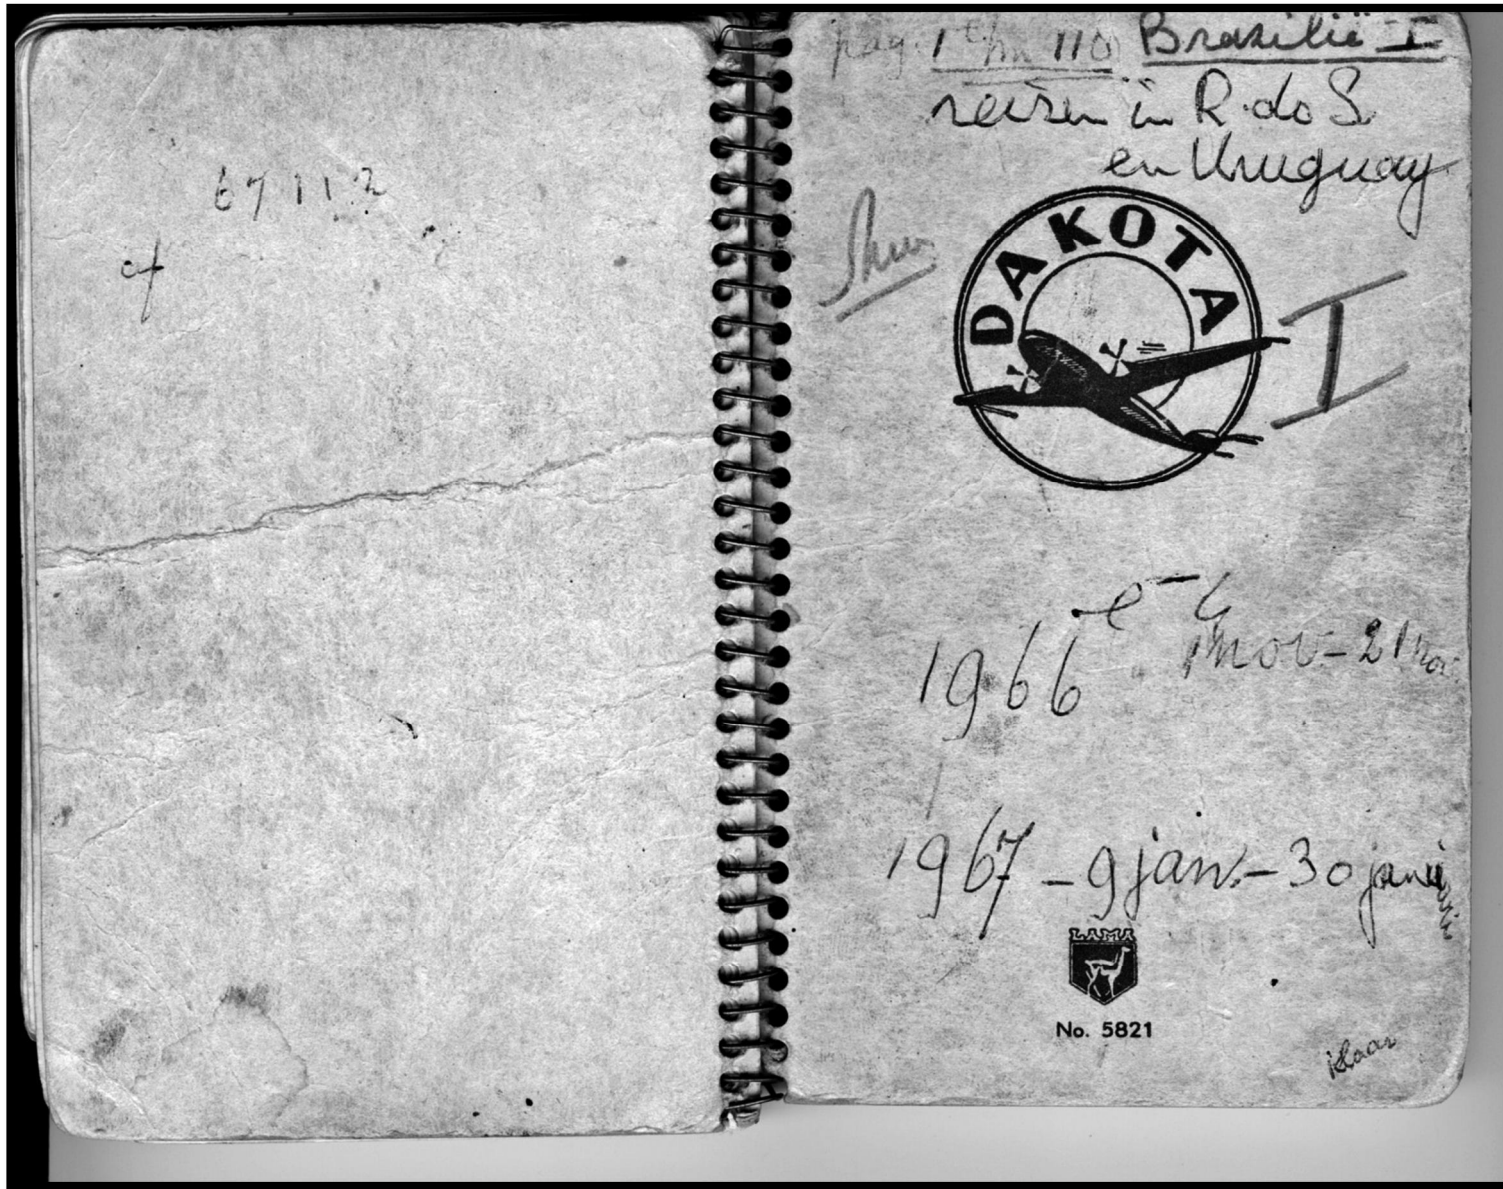 67112
cf
pag. 1 t/m 110 Brazilië I
reizen in R. do S.
en Uruguay
DAKOTA
I
1966 nov - 21 nov
1967 - 9 jan. - 30 januari
LAMA
No. 5821
klaar